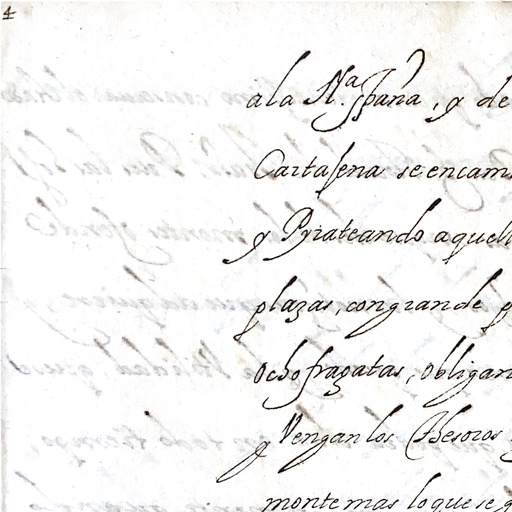 4
a la N.ª España, y de
Cartajena se encam
y Pyrateando aquell
plazas, con grande p
ocho fragatas, obligan
y Vengan los Thesoros
monte mas lo que se g